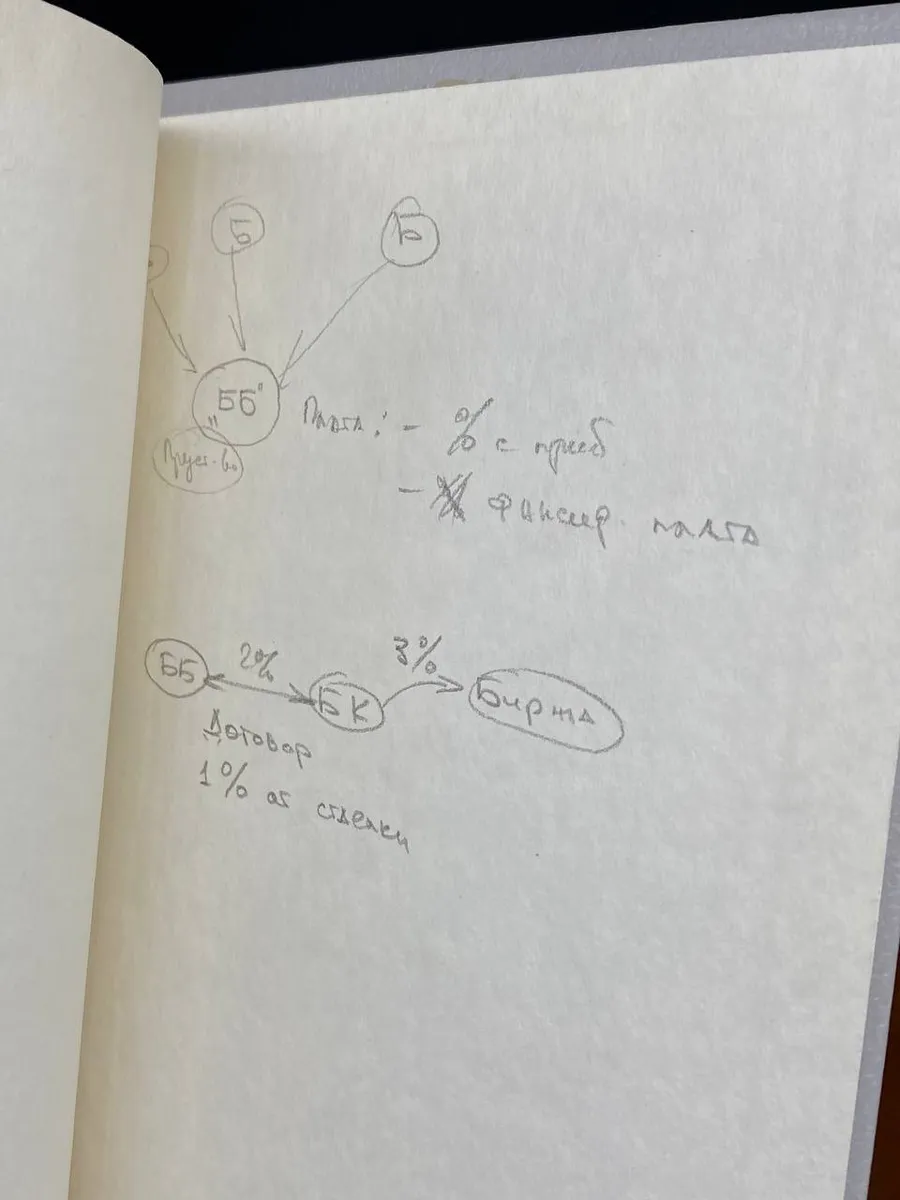 Б Б
"ББ"
Плата: - % с приб
- фиксир. плата
2% 3%
ББ БК Биржа
Договор
1% от сделки